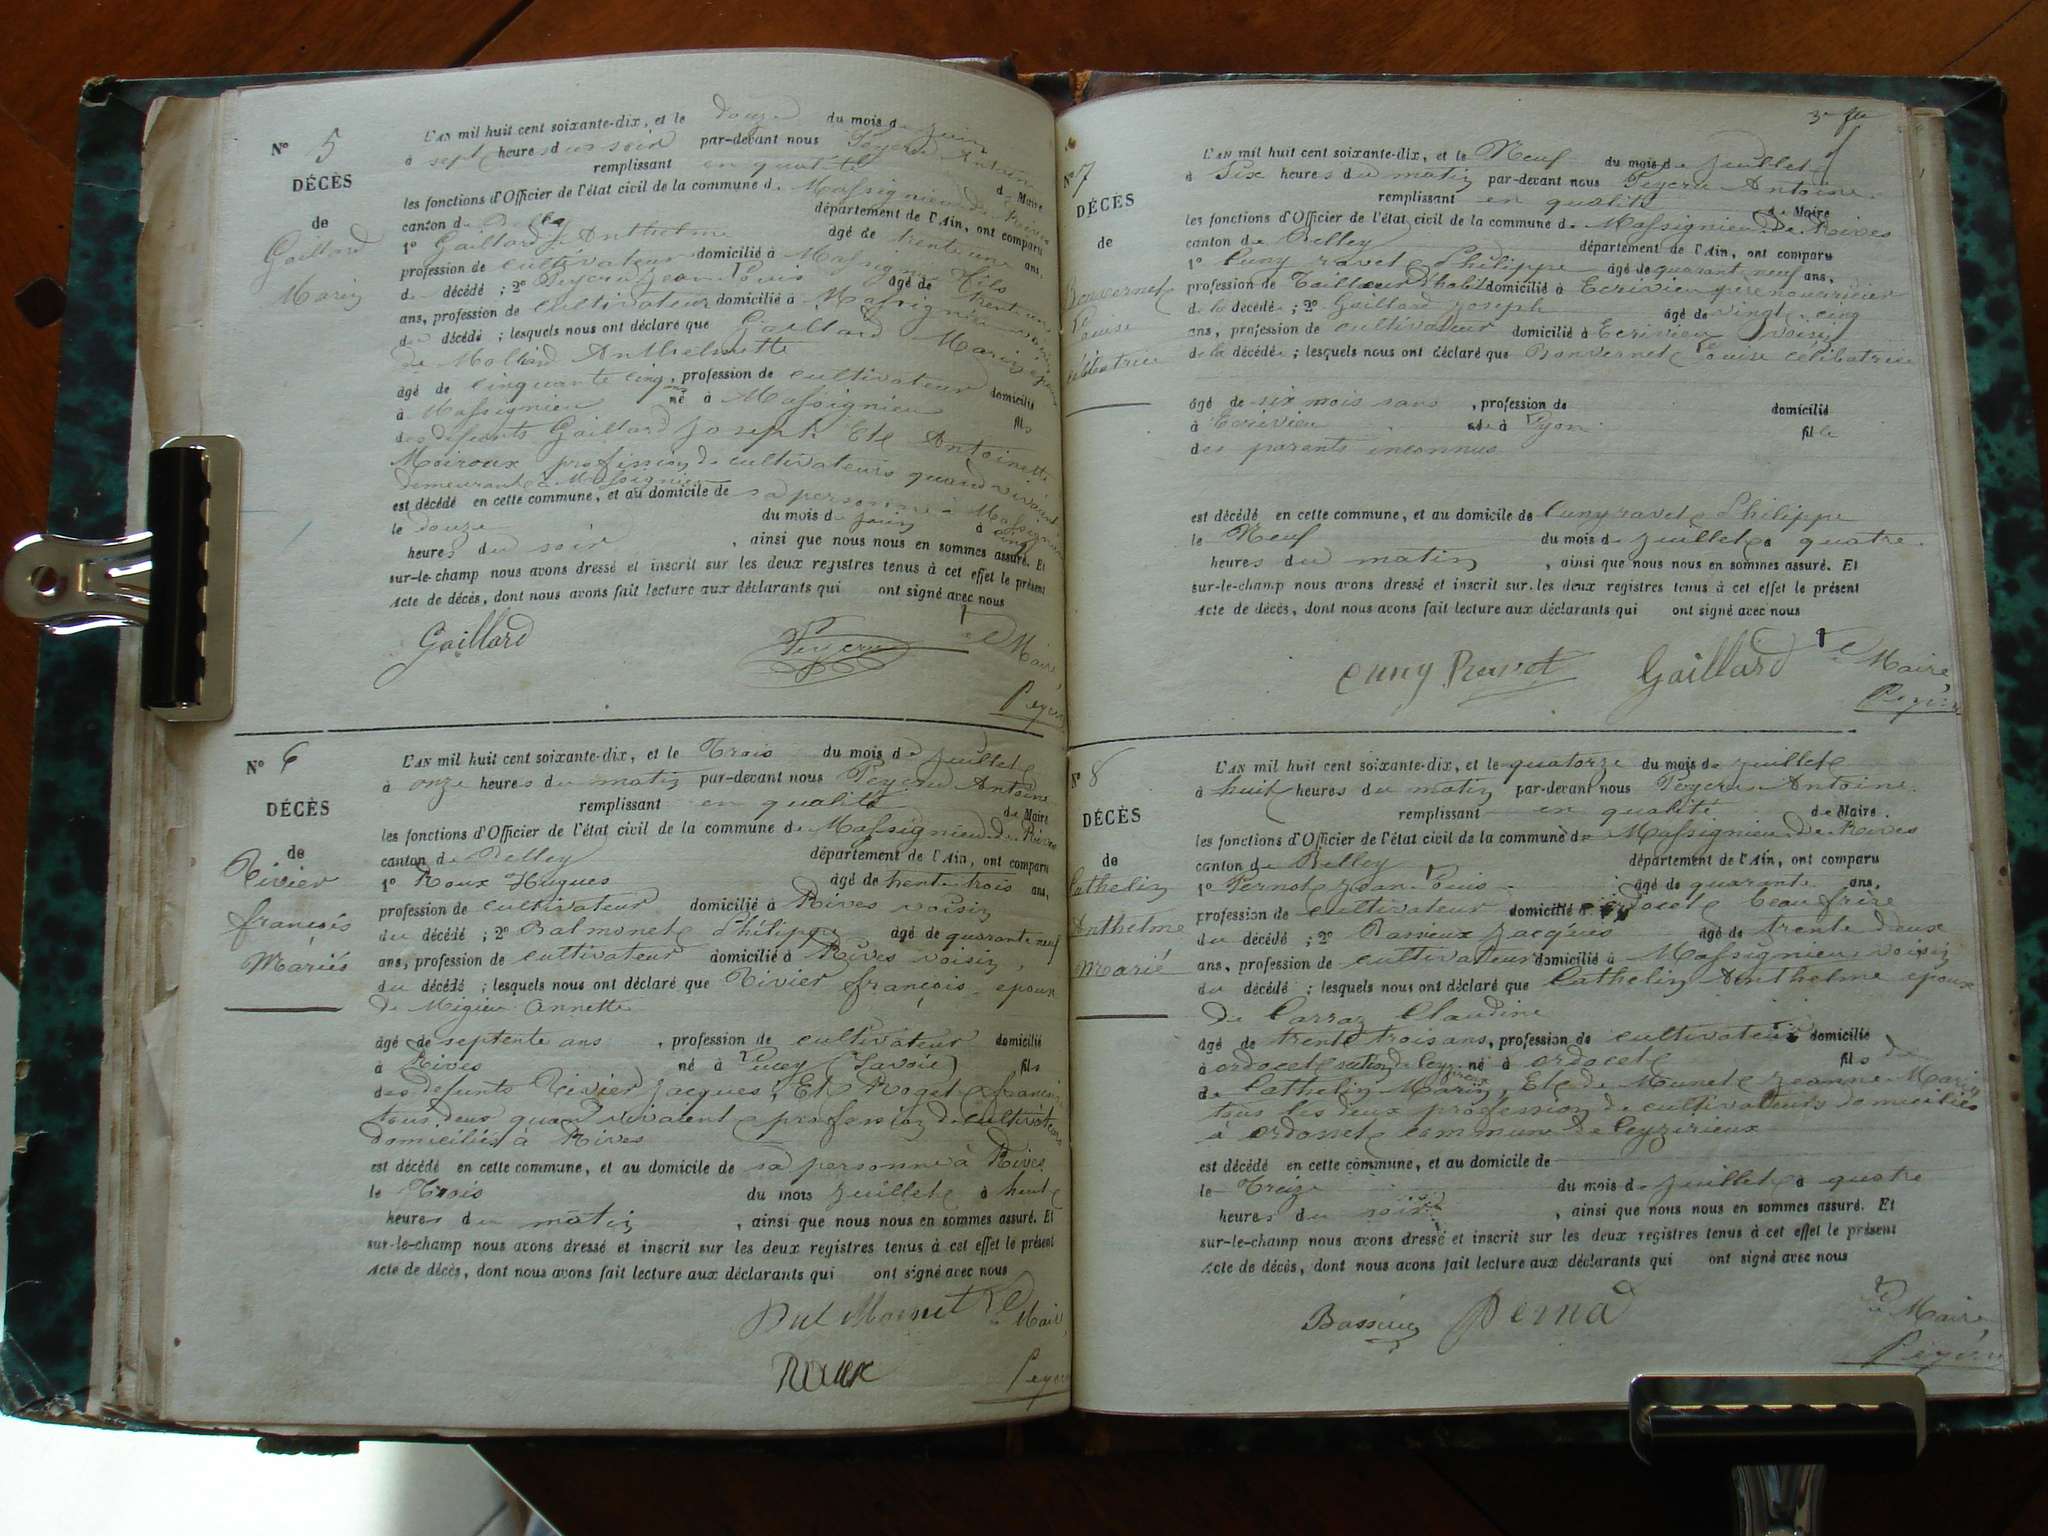 N° 5
DÉCÈS
de
Gaillard
Marin
L'AN mil huit cent soixante-dix, et le douze du mois de juin
à sept heures du soir par-devant nous Peyeru Antoine
remplissant en qualité de Maire
les fonctions d'Officier de l'état civil de la commune de Massignieu de Rives
canton de Belley département de l'Ain, ont comparu
1° Gaillard Anthelme âgé de trente un ans,
profession de cultivateur domicilié à Massignieu fils
du décédé ; 2° Peyeru Jean Louis âgé de trent un
ans, profession de cultivateur domicilié à Massignieu voisin
du décédé ; lesquels nous ont déclaré que Gaillard Marin époux
de Mollard Anthelmette
âgé de cinquante cinq ans, profession de cultivateur domicilié
à Massignieu né à Massignieu fils
des défunts Gaillard Joseph Et Antoinette
Moiroux profession de cultivateurs quand vivant
demeurant à Massignieu
est décédé en cette commune, et au domicile de sa personne à Massignieu
le douze du mois de juin à cinq
heures du soir, ainsi que nous nous en sommes assuré. Et
sur-le-champ nous avons dressé et inscrit sur les deux registres tenus à cet effet le présent
Acte de décès, dont nous avons fait lecture aux déclarants qui ont signé avec nous
Gaillard Peyeru Le Maire
N° 6
DÉCÈS
de
Rivier
françois
Mariés
L'AN mil huit cent soixante-dix, et le Trois du mois de juillet
à onze heures du matin par-devant nous Peyeru Antoine
remplissant en qualité de Maire
les fonctions d'Officier de l'état civil de la commune de Massignieu de Rives
canton de Belley département de l'Ain, ont comparu
1° Roux Hugues âgé de trente trois ans,
profession de cultivateur domicilié à Rives voisin
du décédé ; 2° Balmonet Philippe âgé de quarante neuf
ans, profession de cultivateur domicilié à Rives voisin,
du décédé ; lesquels nous ont déclaré que Rivier françois epoux
de Migieu Annette
âgé de septente ans, profession de cultivateur domicilié
à Rives né à Lucey (Savoie) fils
des défunts Rivier jacques, Et Roget
tous deux quand vivaient profession de cultivateurs
domiciliés à Rives
est décédé en cette commune, et au domicile de sa personne à Rives
le Trois du mois juillet à huit
heures du matin, ainsi que nous nous en sommes assuré. Et
sur-le-champ nous avons dressé et inscrit sur les deux registres tenus à cet effet le présent
Acte de décès, dont nous avons fait lecture aux déclarants qui ont signé avec nous
Le Maire
Roux
N° 7
DÉCÈS
de
Bonvernet
Louise
célibatrie
L'AN mil huit cent soixante-dix, et le Neuf du mois de juillet
à Six heures du matin par-devant nous Peyeru Antoine
remplissant en qualité de Maire
les fonctions d'Officier de l'état civil de la commune de Massignieu de Rives
canton de Belley département de l'Ain, ont comparu
1° Cuny ravet Philippe âgé de quarant neuf ans,
profession de Tailleur d'habit domicilié à Ecrivieu père nourricier
de la décédé ; 2° Gaillard Joseph âgé de vingt cinq
ans, profession de cultivateur domicilié à Ecrivieu voisin
de la décédée ; lesquels nous ont déclaré que Bonvernet Louise célibatrie
âgé de six mois sans, profession de domicilié
à Ecrivieu née à Lyon fille
des parents inconnus
est décédé en cette commune, et au domicile de Cuny ravet Philippe
le Neuf du mois de juillet à quatre
heures du matin, ainsi que nous nous en sommes assuré. Et
sur-le-champ nous avons dressé et inscrit sur les deux registres tenus à cet effet le présent
Acte de décès, dont nous avons fait lecture aux déclarants qui ont signé avec nous
Cuny Ravet Gaillard Le Maire
N° 8
DÉCÈS
de
Cathelin
Anthelme
Marié
L'AN mil huit cent soixante-dix, et le quatorze du mois de juillet
à huit heures du matin par-devant nous Peyeru Antoine
remplissant en qualité de Maire.
les fonctions d'Officier de l'état civil de la commune de Massignieu de Rives
canton de Belley département de l'Ain, ont comparu
1° Pernet jean Louis âgé de quarante ans,
profession de cultivateur domicilié beau frère
du décédé ; 2° Bassieux jacques âgé de trente deux
ans, profession de cultivateur domicilié à Massignieu voisin
du décédé ; lesquels nous ont déclaré que Cathelin Anthelme epoux
de Carraz Claudine
âgé de trente trois ans, profession de cultivateur domicilié
à ordocet né à ordocet fils
de Cathelin Marin, Et de Munet jeanne Marie
tous les deux profession de cultivateurs domiciliés
à ordosset commune de Ceyzirieux
est décédé en cette commune, et au domicile de
le Treize du mois de juillet à quatre
heures du soir, ainsi que nous nous en sommes assuré. Et
sur-le-champ nous avons dressé et inscrit sur les deux registres tenus à cet effet le présent
Acte de décès, dont nous avons fait lecture aux déclarants qui ont signé avec nous
Le Maire